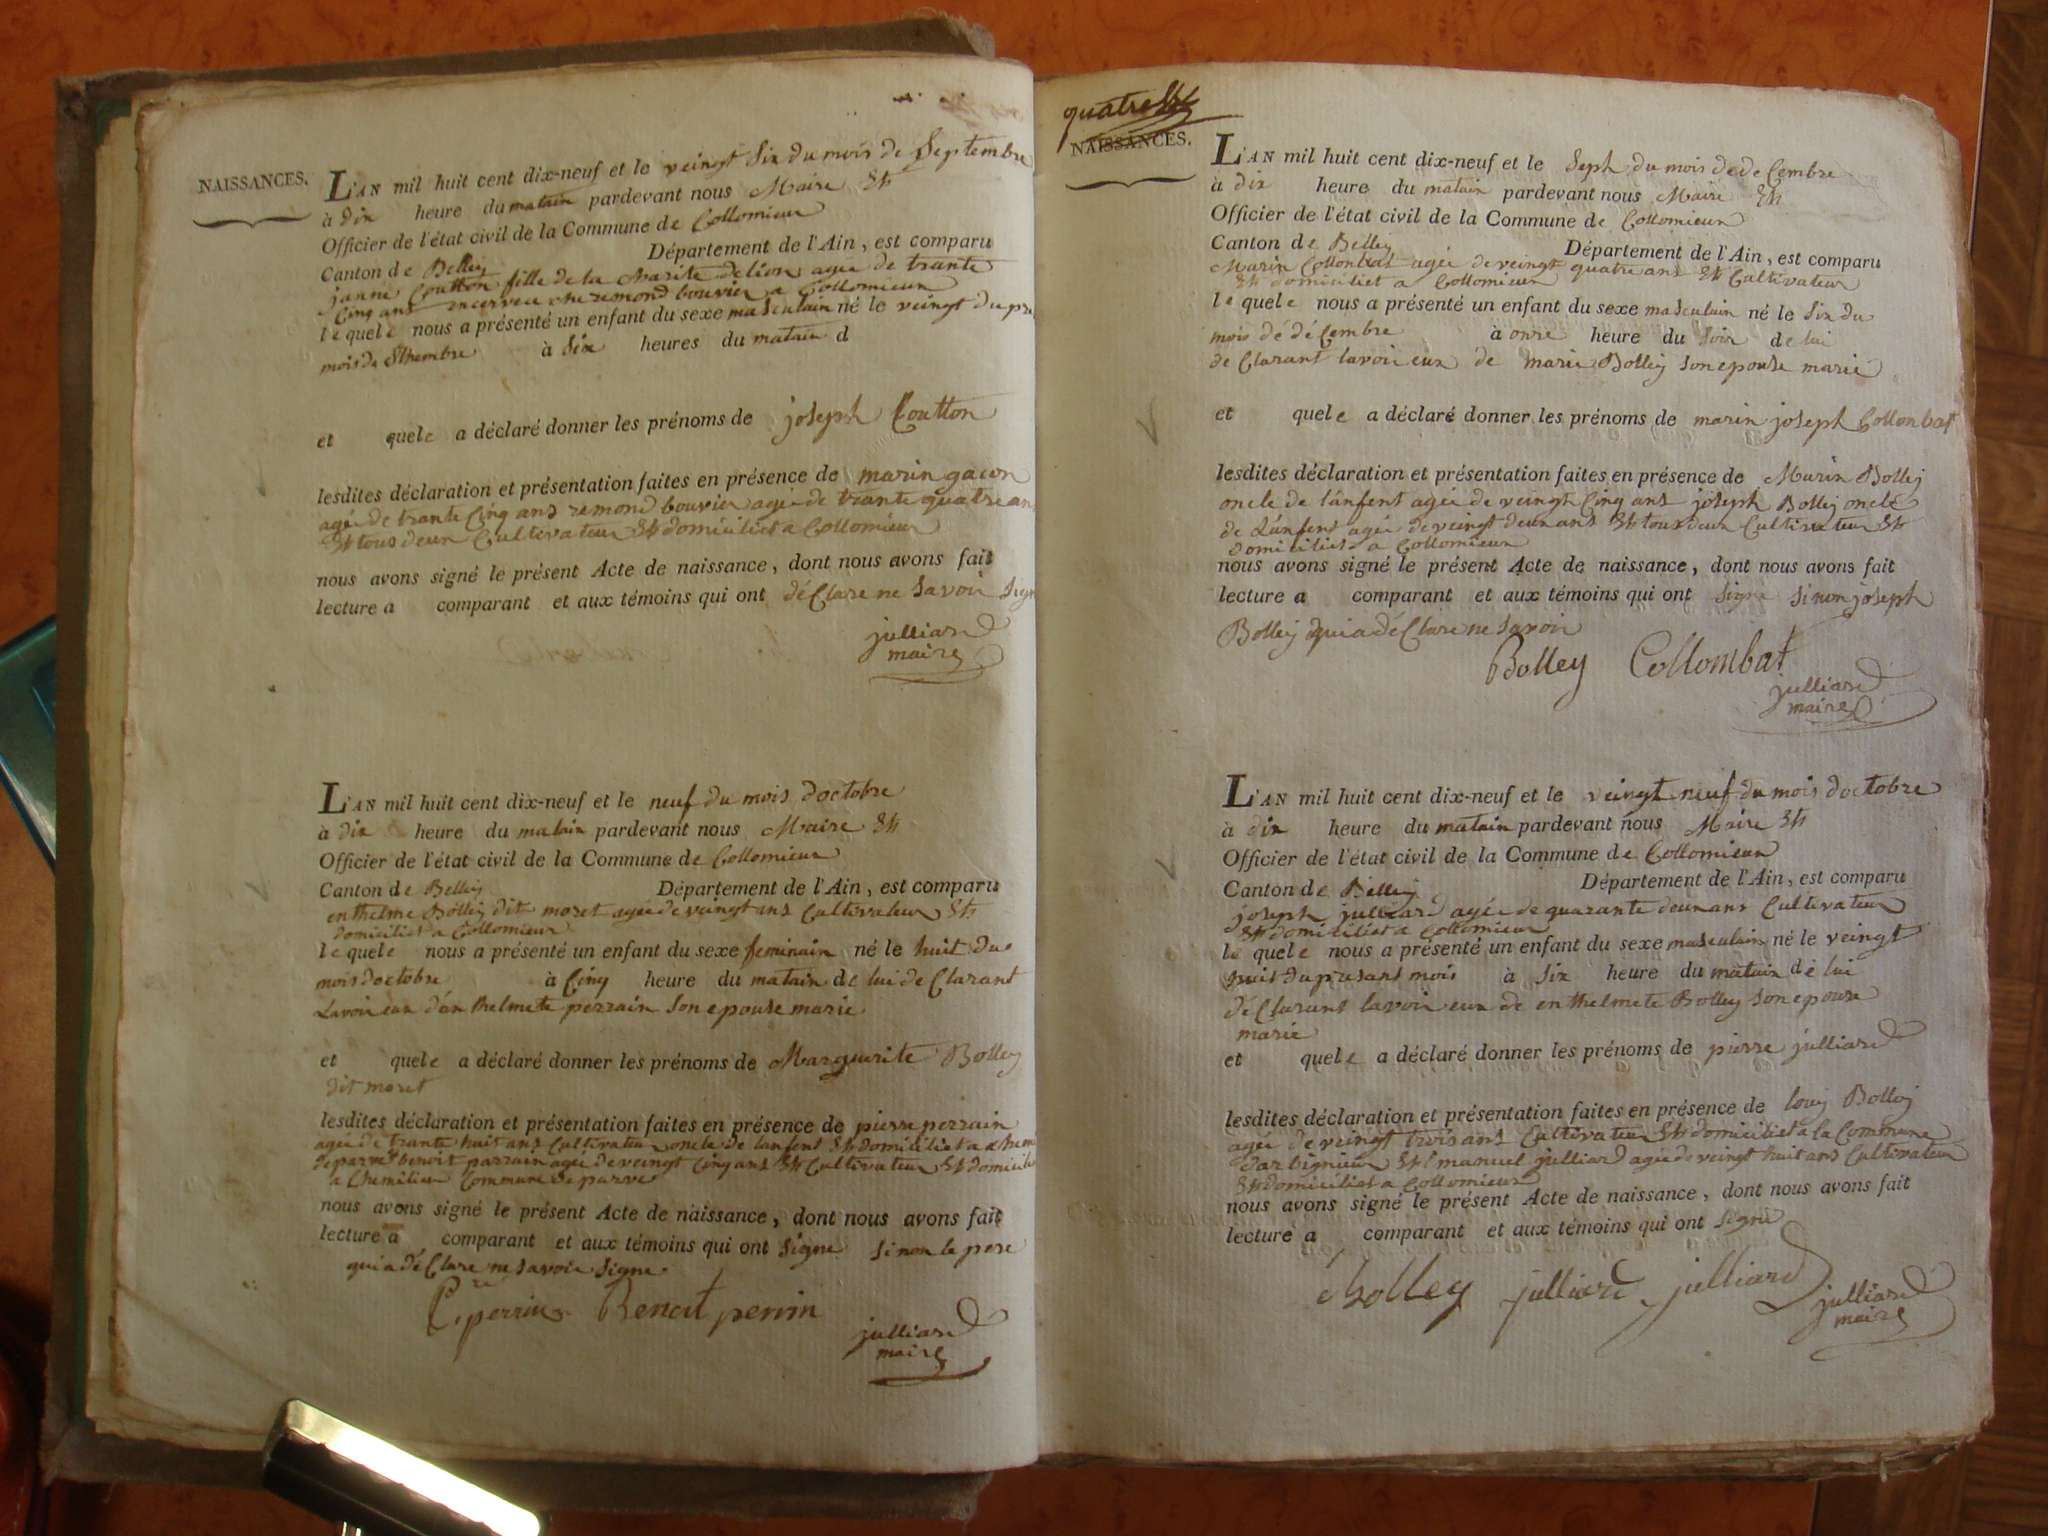 NAISSANCES.
L'AN mil huit cent dix-neuf et le veingt Six du mois de Septembre
à dix heure du matain pardevant nous Maire Et
Officier de l'état civil de la Commune de Collomieux
Canton de Belley Département de l'Ain, est comparu
janne Coutton fille de la Charité de lion agée de trante
Cinq ans remond bouvier a Collomieux
lequele nous a présenté un enfant du sexe masculain né le veingt du
mois de à Six heures du matain d
et quele a déclaré donner les prénoms de joseph Coutton
lesdites déclaration et présentation faites en présence de marin gacon
agée de trante Cinq ans remond bouvier agée de trante quatre an
Et tous deux Cultivateur Et domiciliet a Collomieux
nous avons signé le présent Acte de naissance, dont nous avons fait
lecture a comparant et aux témoins qui ont déClare ne Savoir Sign
julliard
maire
L'AN mil huit cent dix-neuf et le neuf du mois doctobre
à dix heure du matain pardevant nous Maire Et
Officier de l'état civil de la Commune de Collomieux
Canton de Belley Département de l'Ain, est comparu
enthelme Bolley dit moret agée de veingt ans Cultivateur Et
domiciliet a Collomieux
lequele nous a présenté un enfant du sexe feminain né le huit du
mois doctobre à Cinq heure du matain de lui deClarant
Lavoir eux dan thelmete perrain Son epouse marie
et quele a déclaré donner les prénoms de Marguerite Bolley
dit moret
lesdites déclaration et présentation faites en présence de pierre perrain
agée de trante huit ans Cultivateur oncle de lanfent Et domiciliet a
de parve benoit parrain agée de veingt Cinq ans Et Cultivateur Et domicilie
a Chemilieu Commune de parve
nous avons signé le présent Acte de naissance, dont nous avons fait
lecture a comparant et aux témoins qui ont Signe Si non le pere
qui a déClare ne Savoir Signe
P.re perrin Benoit perrin
julliard
maire
quatre
NAISSANCES.
L'AN mil huit cent dix-neuf et le Seph du mois de deCembre
à dix heure du matain pardevant nous Maire Et
Officier de l'état civil de la Commune de Collomieux
Canton de Belley Département de l'Ain, est comparu
Marin Collonbat agée de veingt quatre ans Et Cultivateur
Et domiciliet a Collomieux
lequele nous a présenté un enfant du sexe masculain né le Six du
mois de déCembre à onre heure du Soir de lui
deClarant lavoir eux de marie Bolley Son epouse marie
et quele a déclaré donner les prénoms de marin joseph Collonbat
lesdites déclaration et présentation faites en présence de Marin Bolley
oncle de lanfent agée de veingt Cinq ans joseph Bolley oncle
de Lanfent agée de veingt deux ans Et tous deux Cultivateur Et
domiciliet a Collomieux
nous avons signé le présent Acte de naissance, dont nous avons fait
lecture a comparant et aux témoins qui ont Signe Si non joseph
Bolley qui a déClare ne Savoir
Bolley Collombat
julliard
maire
L'AN mil huit cent dix-neuf et le veingt neuf du mois doctobre
à dix heure du matain pardevant nous Maire Et
Officier de l'état civil de la Commune de Collomieux
Canton de Belley Département de l'Ain, est comparu
joseph julliard agée de quarante deux ans Cultivateur
Et domiciliet a Collomieux
lequele nous a présenté un enfant du sexe masculain né le veingt
huit du presant mois à Six heure du matain de lui
déClarant lavoir eux de enthelmete Bolley Son epouse
marie
et quele a déclaré donner les prénoms de pierre julliard
lesdites déclaration et présentation faites en présence de louy Bolley
agée de veingt trois ans Cultivateur Et domiciliet a la Commune
darbignieux Et Emanuel julliard agée de veingt huit ans Cultivateur
Et domiciliet a Collomieux
nous avons signé le présent Acte de naissance, dont nous avons fait
lecture a comparant et aux témoins qui ont Signé
bolley julliard julliard
julliard
maire